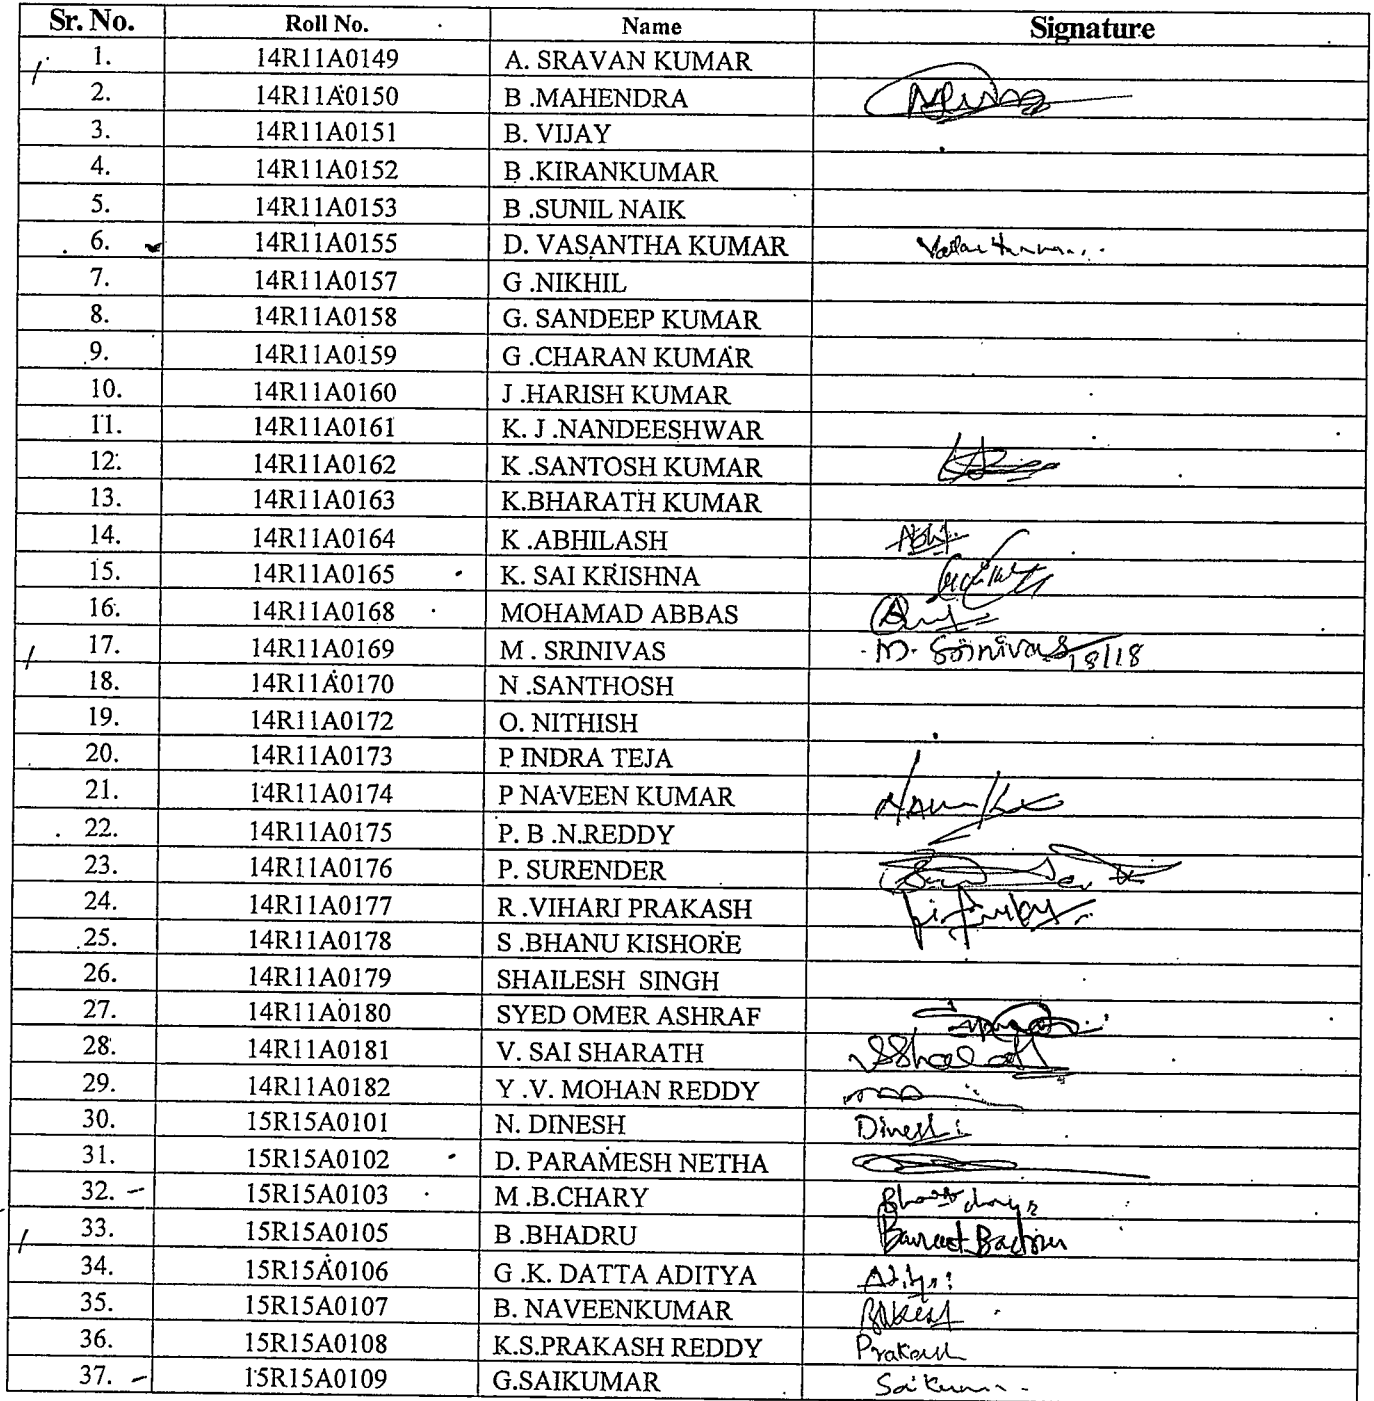 Sr. No. Roll No. Name Signature
1. 14R11A0149 A. SRAVAN KUMAR
2. 14R11A0150 B .MAHENDRA
3. 14R11A0151 B. VIJAY
4. 14R11A0152 B .KIRANKUMAR
5. 14R11A0153 B .SUNIL NAIK
6. 14R11A0155 D. VASANTHA KUMAR
7. 14R11A0157 G .NIKHIL
8. 14R11A0158 G. SANDEEP KUMAR
9. 14R11A0159 G .CHARAN KUMAR
10. 14R11A0160 J .HARISH KUMAR
11. 14R11A0161 K. J .NANDEESHWAR
12. 14R11A0162 K .SANTOSH KUMAR
13. 14R11A0163 K.BHARATH KUMAR
14. 14R11A0164 K .ABHILASH Abhi
15. 14R11A0165 K. SAI KRISHNA
16. 14R11A0168 MOHAMAD ABBAS
17. 14R11A0169 M . SRINIVAS M. Srinivas 18/18
18. 14R11A0170 N .SANTHOSH
19. 14R11A0172 O. NITHISH
20. 14R11A0173 P INDRA TEJA
21. 14R11A0174 P NAVEEN KUMAR
22. 14R11A0175 P. B .N.REDDY
23. 14R11A0176 P. SURENDER
24. 14R11A0177 R .VIHARI PRAKASH
25. 14R11A0178 S .BHANU KISHORE
26. 14R11A0179 SHAILESH SINGH
27. 14R11A0180 SYED OMER ASHRAF
28. 14R11A0181 V. SAI SHARATH VSSharath
29. 14R11A0182 Y .V. MOHAN REDDY
30. 15R15A0101 N. DINESH Dinesh
31. 15R15A0102 D. PARAMESH NETHA
32. 15R15A0103 M .B.CHARY
33. 15R15A0105 B .BHADRU
34. 15R15A0106 G .K. DATTA ADITYA
35. 15R15A0107 B. NAVEENKUMAR
36. 15R15A0108 K.S.PRAKASH REDDY Prakash
37. 15R15A0109 G.SAIKUMAR Saikumar